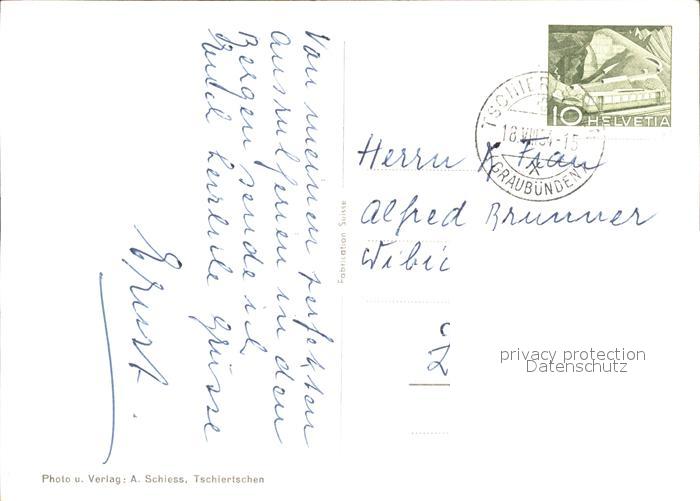 Von meinen perfekten
Ausruhferien in den
Bergen sende ich
Euch herzliche Grüsse
Ernst.
Fabrication Suisse
10 HELVETIA
TSCHIER
18.VIII.54-15
(GRAUBÜNDEN)
Herrn & Frau
Alfred Brunner
Wibic
Z
privacy protection
Datenschutz
Photo u. Verlag: A. Schiess, Tschiertschen